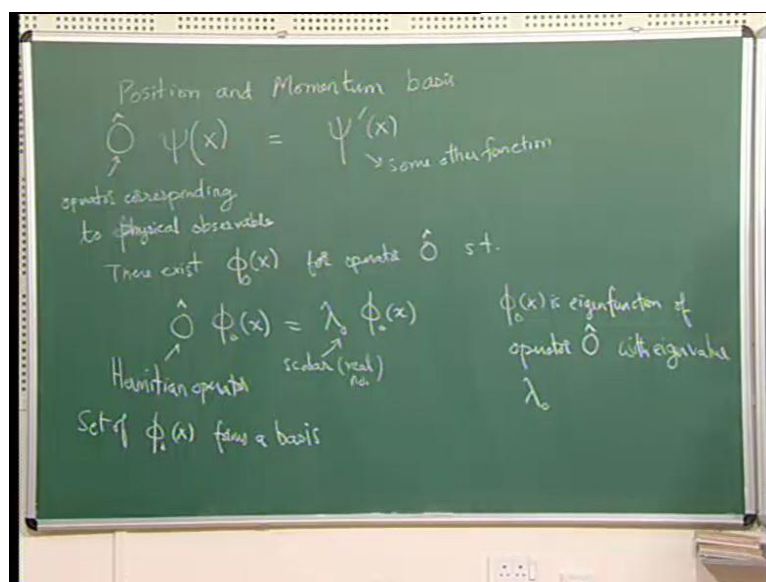 Position and Momentum basis
Ô ψ(x) = ψ′(x)
some other function
operator corresponding
to physical observable
There exist ϕ₀(x) for operator Ô s.t.
Ô ϕ₀(x) = λ₀ ϕ₀(x)
scalar (real no.)
Hermitian operator
Set of ϕ₀(x) forms a basis
ϕ₀(x) is eigenfunction of
operator Ô with eigenvalue
λ₀